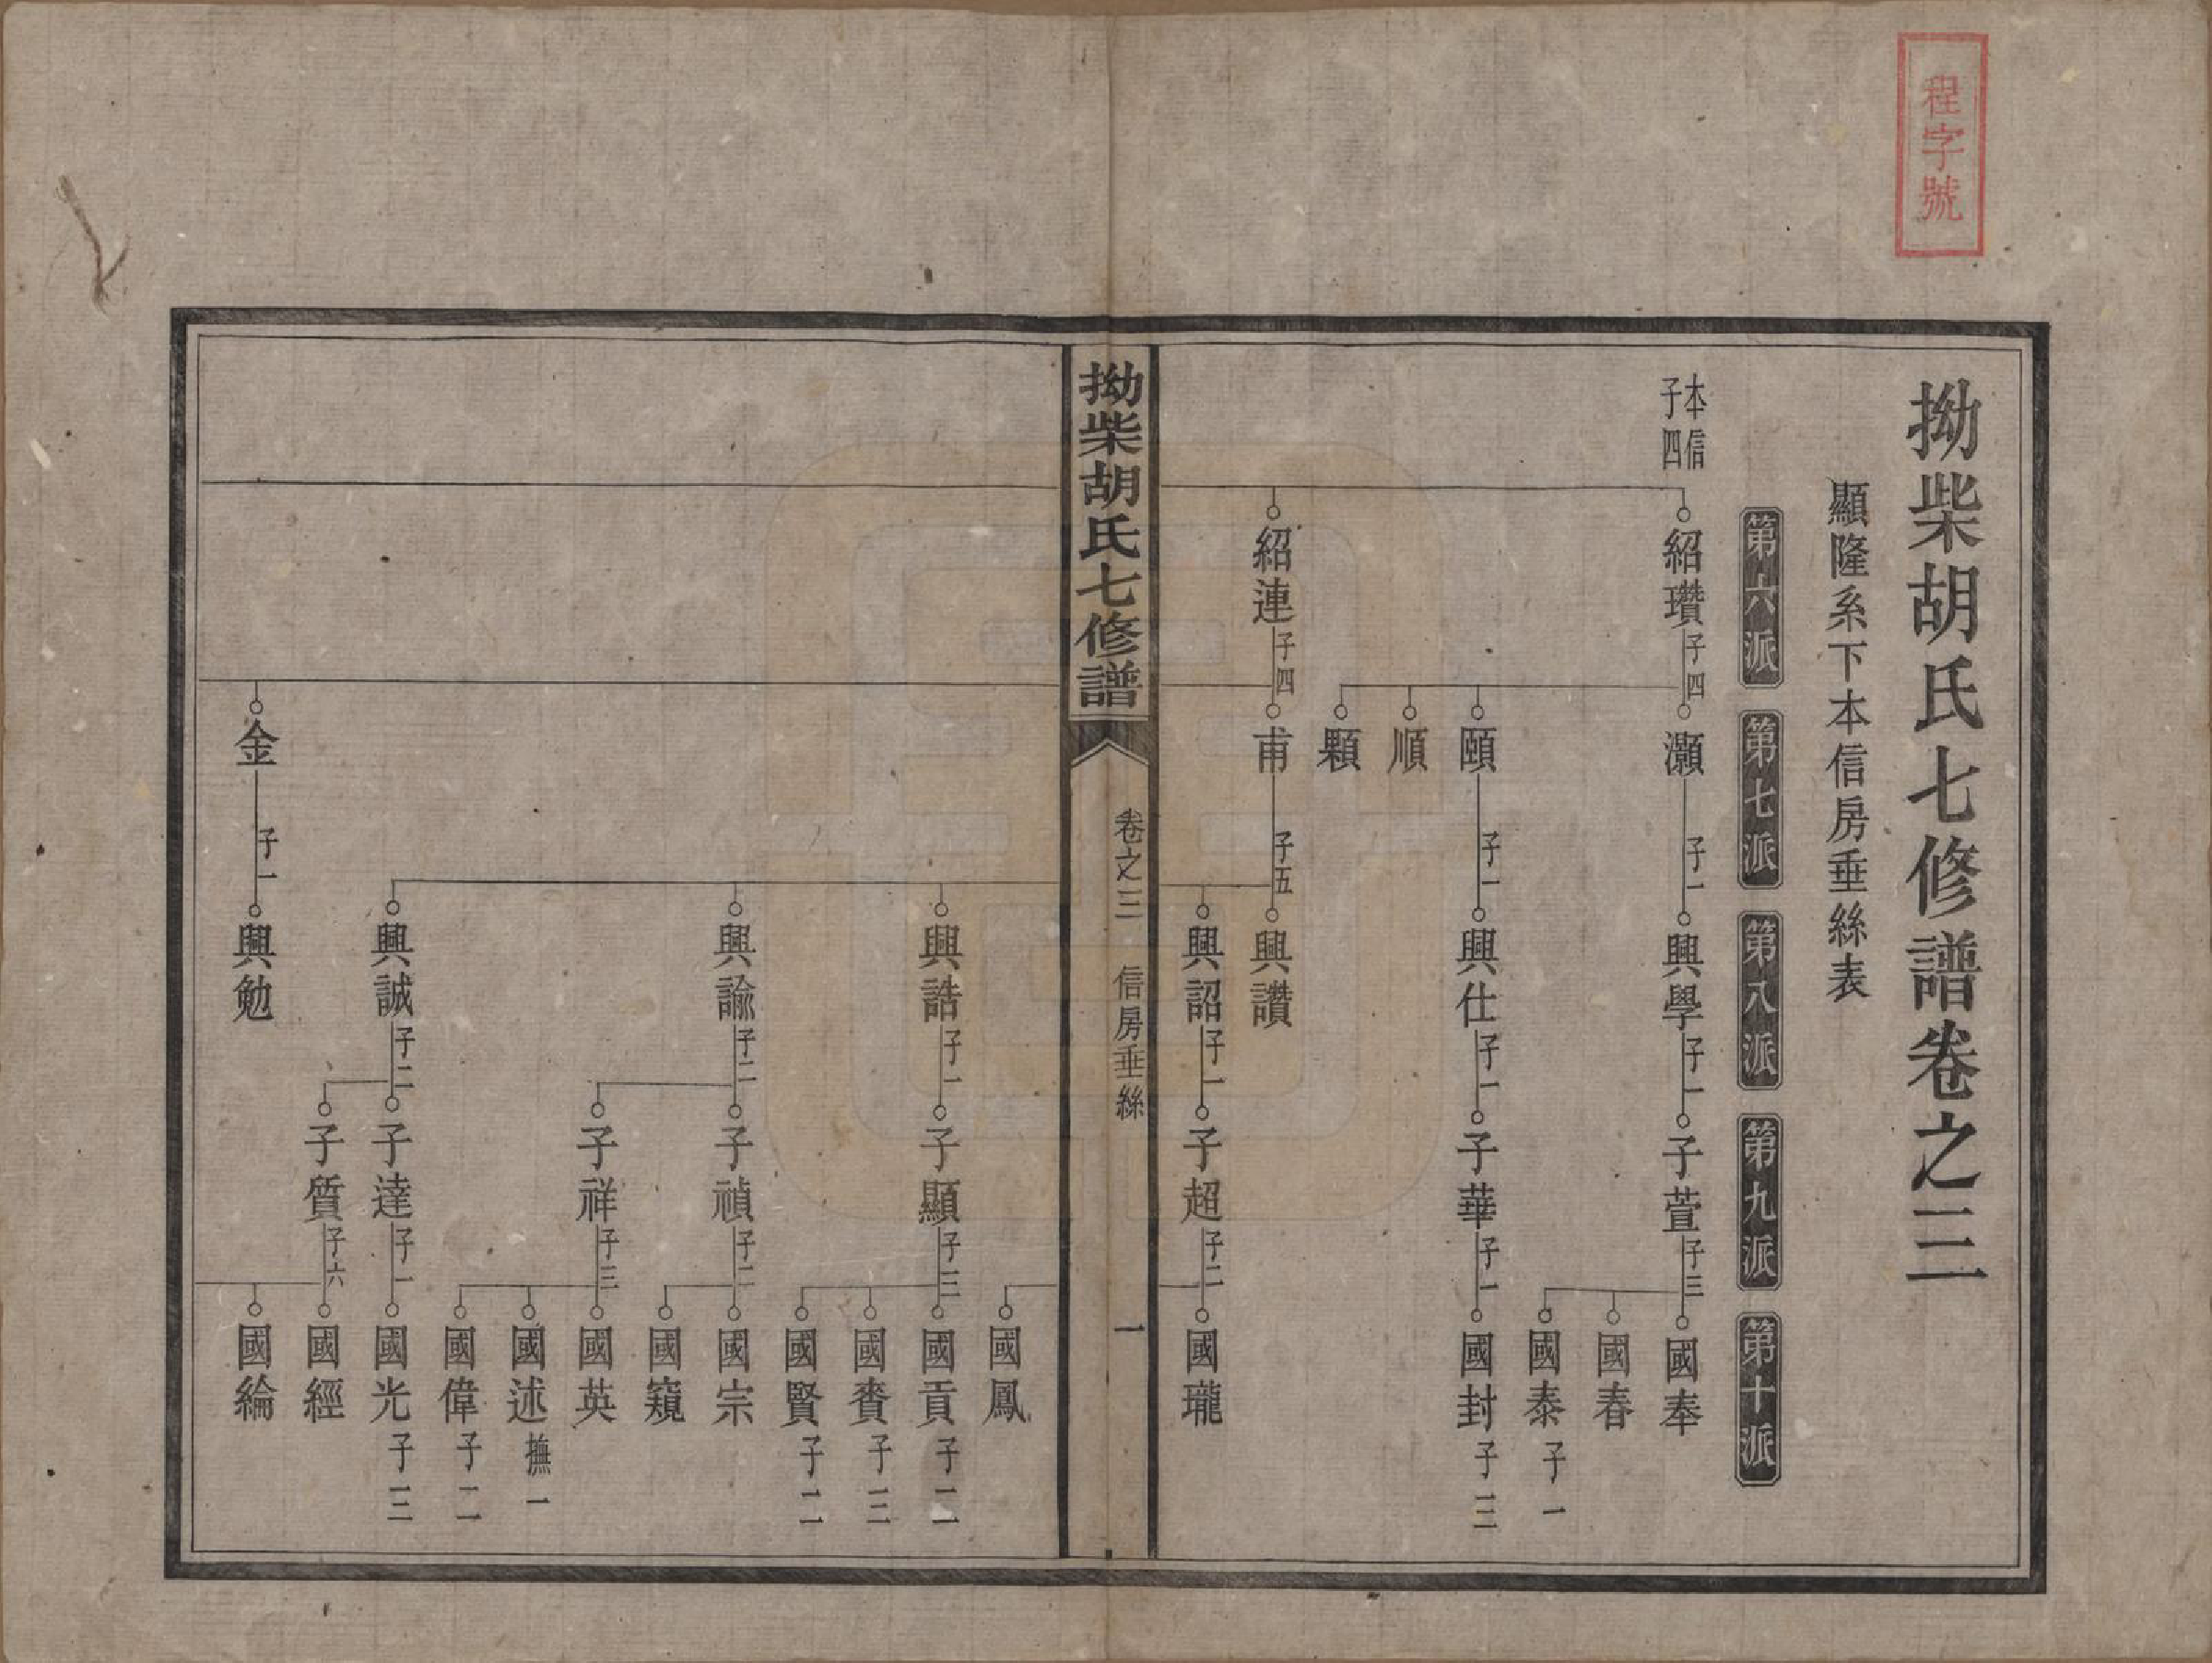 程字號
拗柴胡氏七修譜卷之三
顯隆系下本信房垂絲表
第六派
第七派
第八派
第九派
第十派
本信
子四
紹瓚 子四
灝 子一
興學 子一
子萱 子三
國奉
國春
國泰 子一
頤 子一
興仕 子一
子華 子一
國封 子三
順
顆
紹連 子四
甫 子五
興讚
興詔 子一
子超 子二
國瓏
拗柴胡氏七修譜
卷之三 信房垂絲
一
國鳳
興誥 子一
子顯 子三
國貢 子二
國賚 子三
國賢 子二
興諭 子二
子禎 子二
國宗
國窺
子祥 子三
國英
國述 撫一
國偉 子二
興誠 子二
子達 子一
國光 子三
子質 子六
國經
國綸
金 子一
興勉